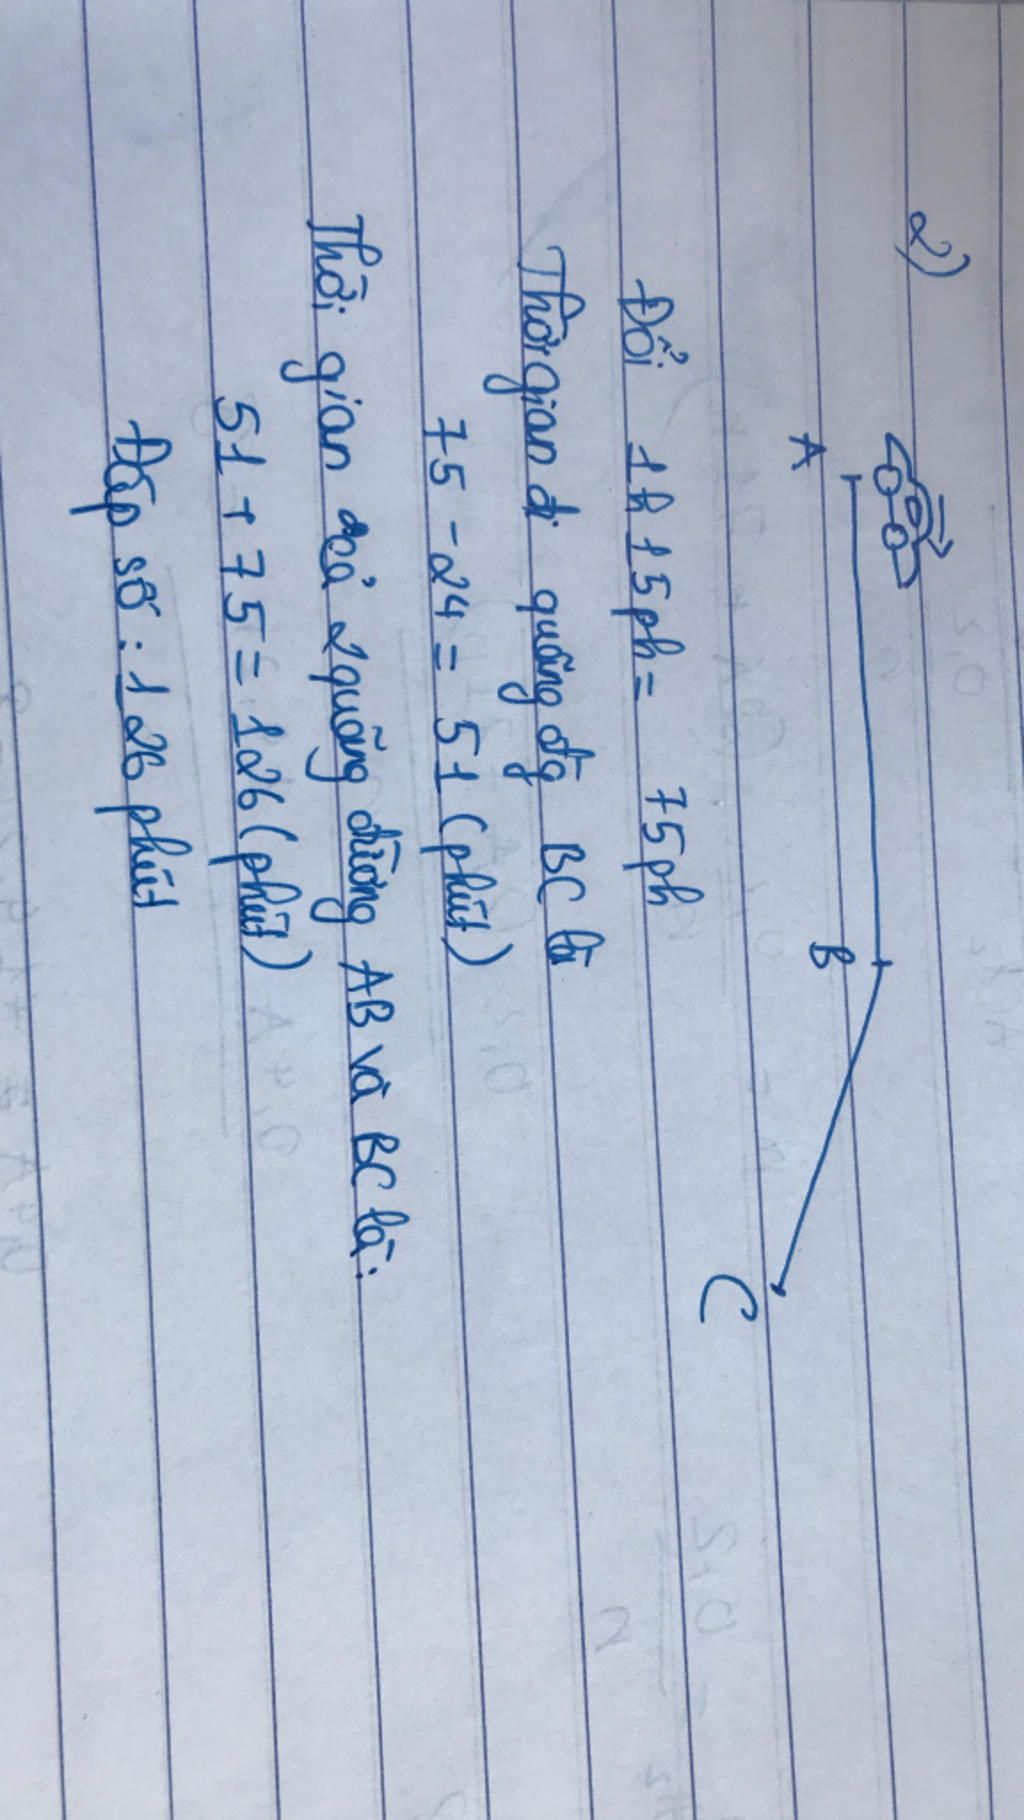 2)
A B C
Đổi 1h15ph = 75ph
Thời gian đi quãng đg BC là
75 - 24 = 51 (phút)
Thời gian cả 2 quãng đường AB và BC là:
51 + 75 = 126 (phút)
Đáp số: 126 phút